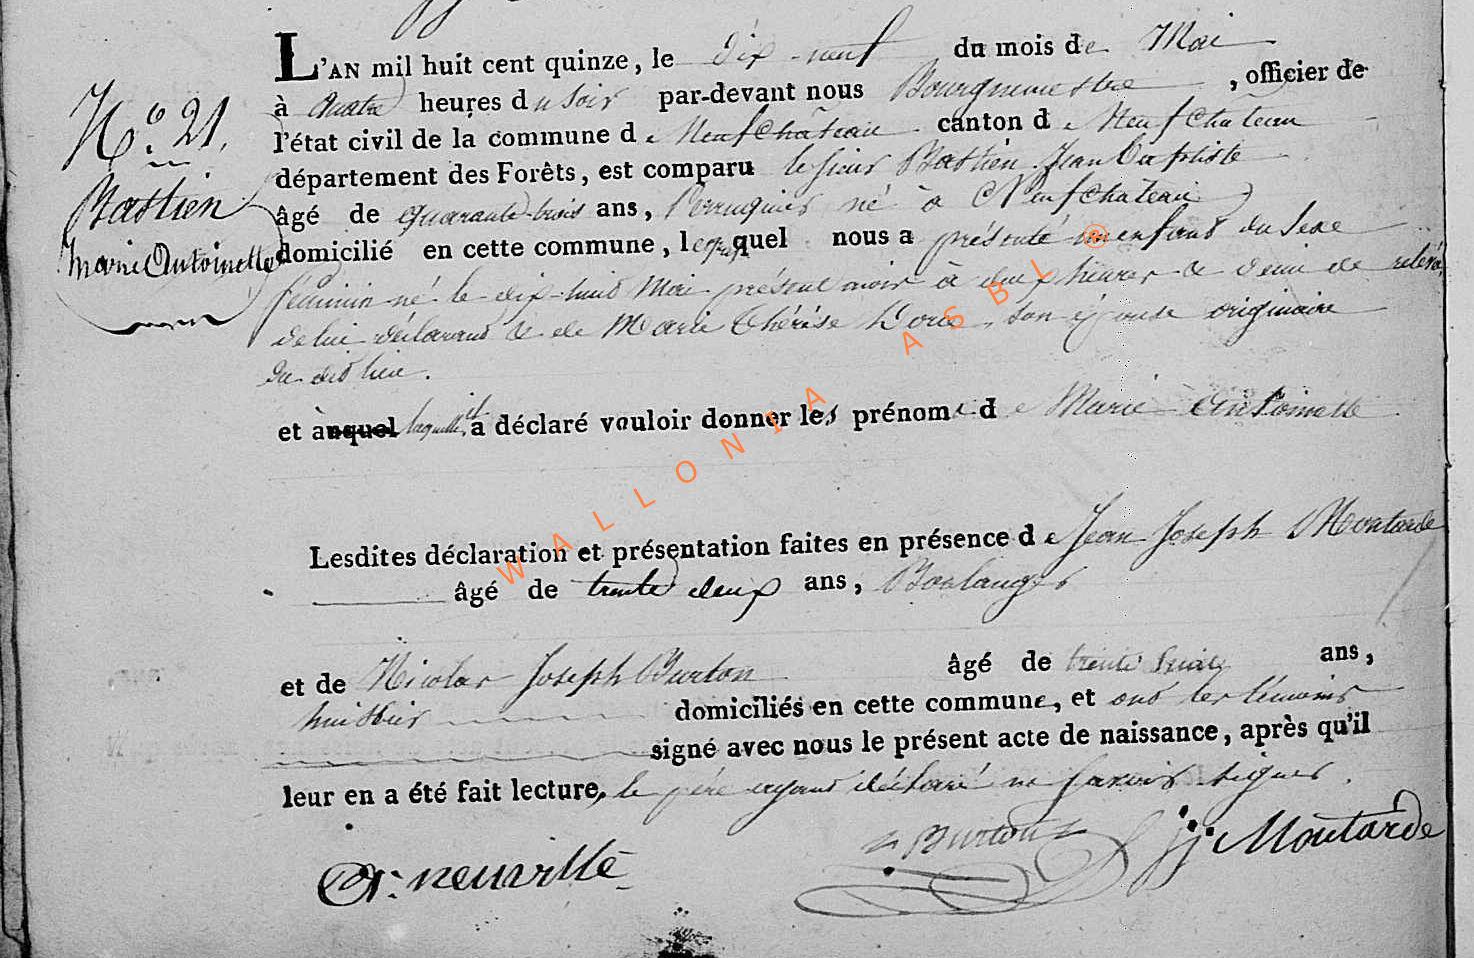 L'AN mil huit cent quinze, le dix-neuf du mois de Mai
N.° 21.
à quatre heures du soir par-devant nous Bourguemestre, officier de
l'état civil de la commune de Neufchâteau canton de Neufchateau
département des Forêts, est comparu le sieur Bastien Jean Baptiste
Bastien
âgé de quarante-trois ans, Perruquier né à Neufchateau
Marie Antoinette
domicilié en cette commune, lequel nous a présenté un enfant du sexe
féminin né le dix-huit Mai présent mois à deux heures & demi de relevé,
de lui déclarant & de Marie Thérèse son épouse originaire
du dit lieu.
et auquel laquelle il a déclaré vouloir donner les prénoms de Marie Antoinette
Lesdites déclaration et présentation faites en présence de Jean Joseph Moutarde
âgé de trente deux ans, Boulanger
et de Nicolas Joseph Burton âgé de trente ans,
huissier domiciliés en cette commune, et ont les témoins
signé avec nous le présent acte de naissance, après qu'il
leur en a été fait lecture, le père ayant déclaré ne savoir signer.
neuville Burton jj Moutarde
WALLONIA ASBL ®